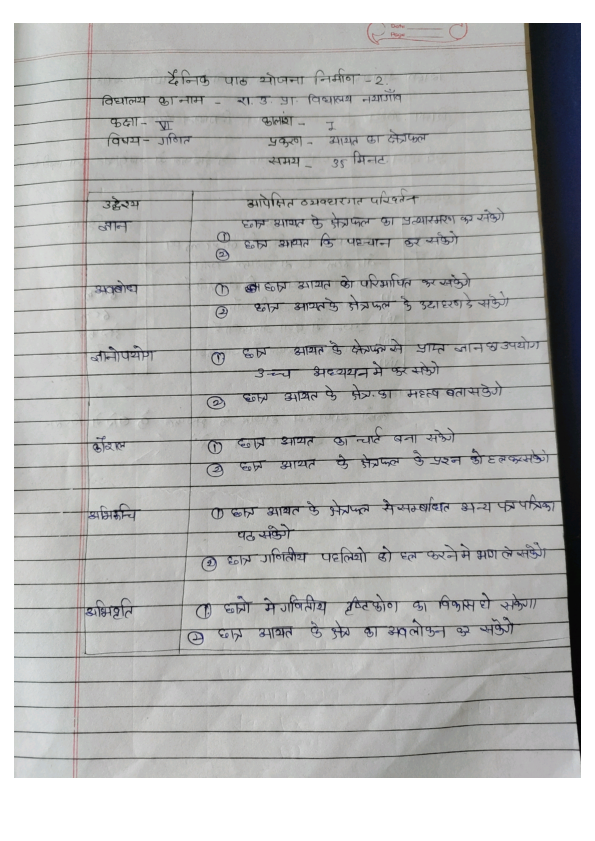 Date
Page
दैनिक पाठ योजना निर्माण - 2.
विद्यालय का नाम - रा. उ. प्रा. विद्यालय नयागाँव
कक्षा - VI कालांश - I
विषय - गणित प्रकरण - आयत का क्षेत्रफल
समय - 35 मिनट
उद्देश्य अपेक्षित व्यवहारगत परिवर्तन
ज्ञान ① छात्र आयत के क्षेत्रफल का प्रत्यास्मरण कर सकेंगे
② छात्र आयत कि पहचान कर सकेंगे
अवबोध ① छात्र आयत को परिभाषित कर सकेंगे
② छात्र आयत के क्षेत्रफल के उदाहरण दे सकेंगे
ज्ञानोपयोग ① छात्र आयत के क्षेत्रफल से प्राप्त ज्ञान का उपयोग
उच्च अध्ययन मे कर सकेंगे
② छात्र आयत के क्षेत्र. का महत्व बता सकेंगे
कौशल ① छात्र आयत का चार्ट बना सकेंगे
② छात्र आयत के क्षेत्रफल के प्रश्न को हल कर सकेंगे
अभिरूचि ① छात्र आयत के क्षेत्रफल से सम्बंधित अन्य पत्र पत्रिका
पढ सकेंगे
② छात्र गणितीय पहलियो को हल करने मे भाग ले सकेंगे
अभिवृति ① छात्रो मे गणितीय दृष्टिकोण का विकास हो सकेगा।
② छात्र आयत के क्षेत्र का अवलोकन कर सकेंगे